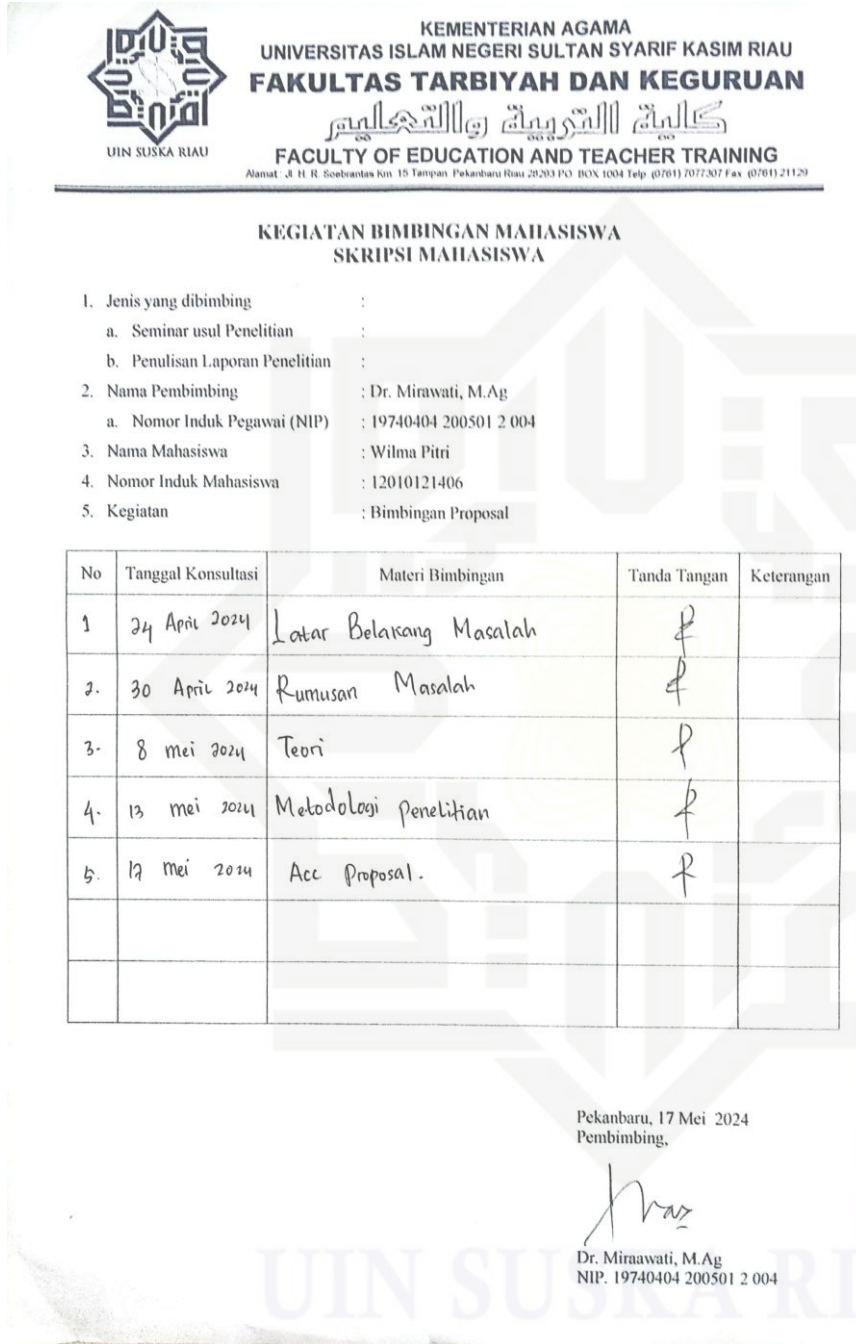 UIN SUSKA RIAU
KEMENTERIAN AGAMA
UNIVERSITAS ISLAM NEGERI SULTAN SYARIF KASIM RIAU
FAKULTAS TARBIYAH DAN KEGURUAN
كلية التربية والتعليم
FACULTY OF EDUCATION AND TEACHER TRAINING
Alamat : Jl. H. R. Soebrantas Km. 15 Tampan Pekanbaru Riau 28293 PO. BOX 1004 Telp. (0761) 7077307 Fax. (0761) 21129
KEGIATAN BIMBINGAN MAHASISWA
SKRIPSI MAHASISWA
1. Jenis yang dibimbing :
a. Seminar usul Penelitian :
b. Penulisan Laporan Penelitian :
2. Nama Pembimbing : Dr. Mirawati, M.Ag
a. Nomor Induk Pegawai (NIP) : 19740404 200501 2 004
3. Nama Mahasiswa : Wilma Pitri
4. Nomor Induk Mahasiswa : 12010121406
5. Kegiatan : Bimbingan Proposal
No Tanggal Konsultasi Materi Bimbingan Tanda Tangan Keterangan
1 24 April 2024 Latar Belakang Masalah
2. 30 April 2024 Rumusan Masalah
3. 8 mei 2024 Teori
4. 13 mei 2024 Metodologi Penelitian
5. 17 mei 2024 Acc Proposal.
Pekanbaru, 17 Mei 2024
Pembimbing,
Dr. Miraawati, M.Ag
NIP. 19740404 200501 2 004
UIN SUSKA RI